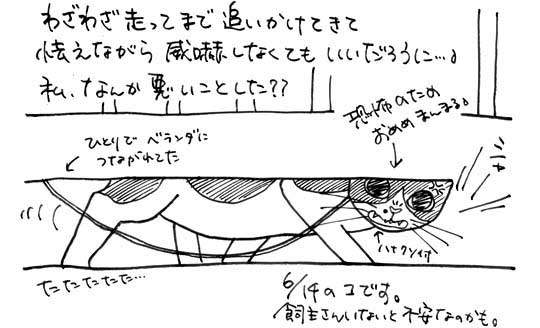 わざわざ走ってまで追いかけてきて
怯えながら威嚇しなくてもいいだろうに…。
私、なんか悪いことした??
恐怖のため
おめめまんまる。
ひとりでベランダに
つながれてた
シャー
ハナクソ付
たたたたた…
6/14のコです。
飼主さんいないと不安なのかも。